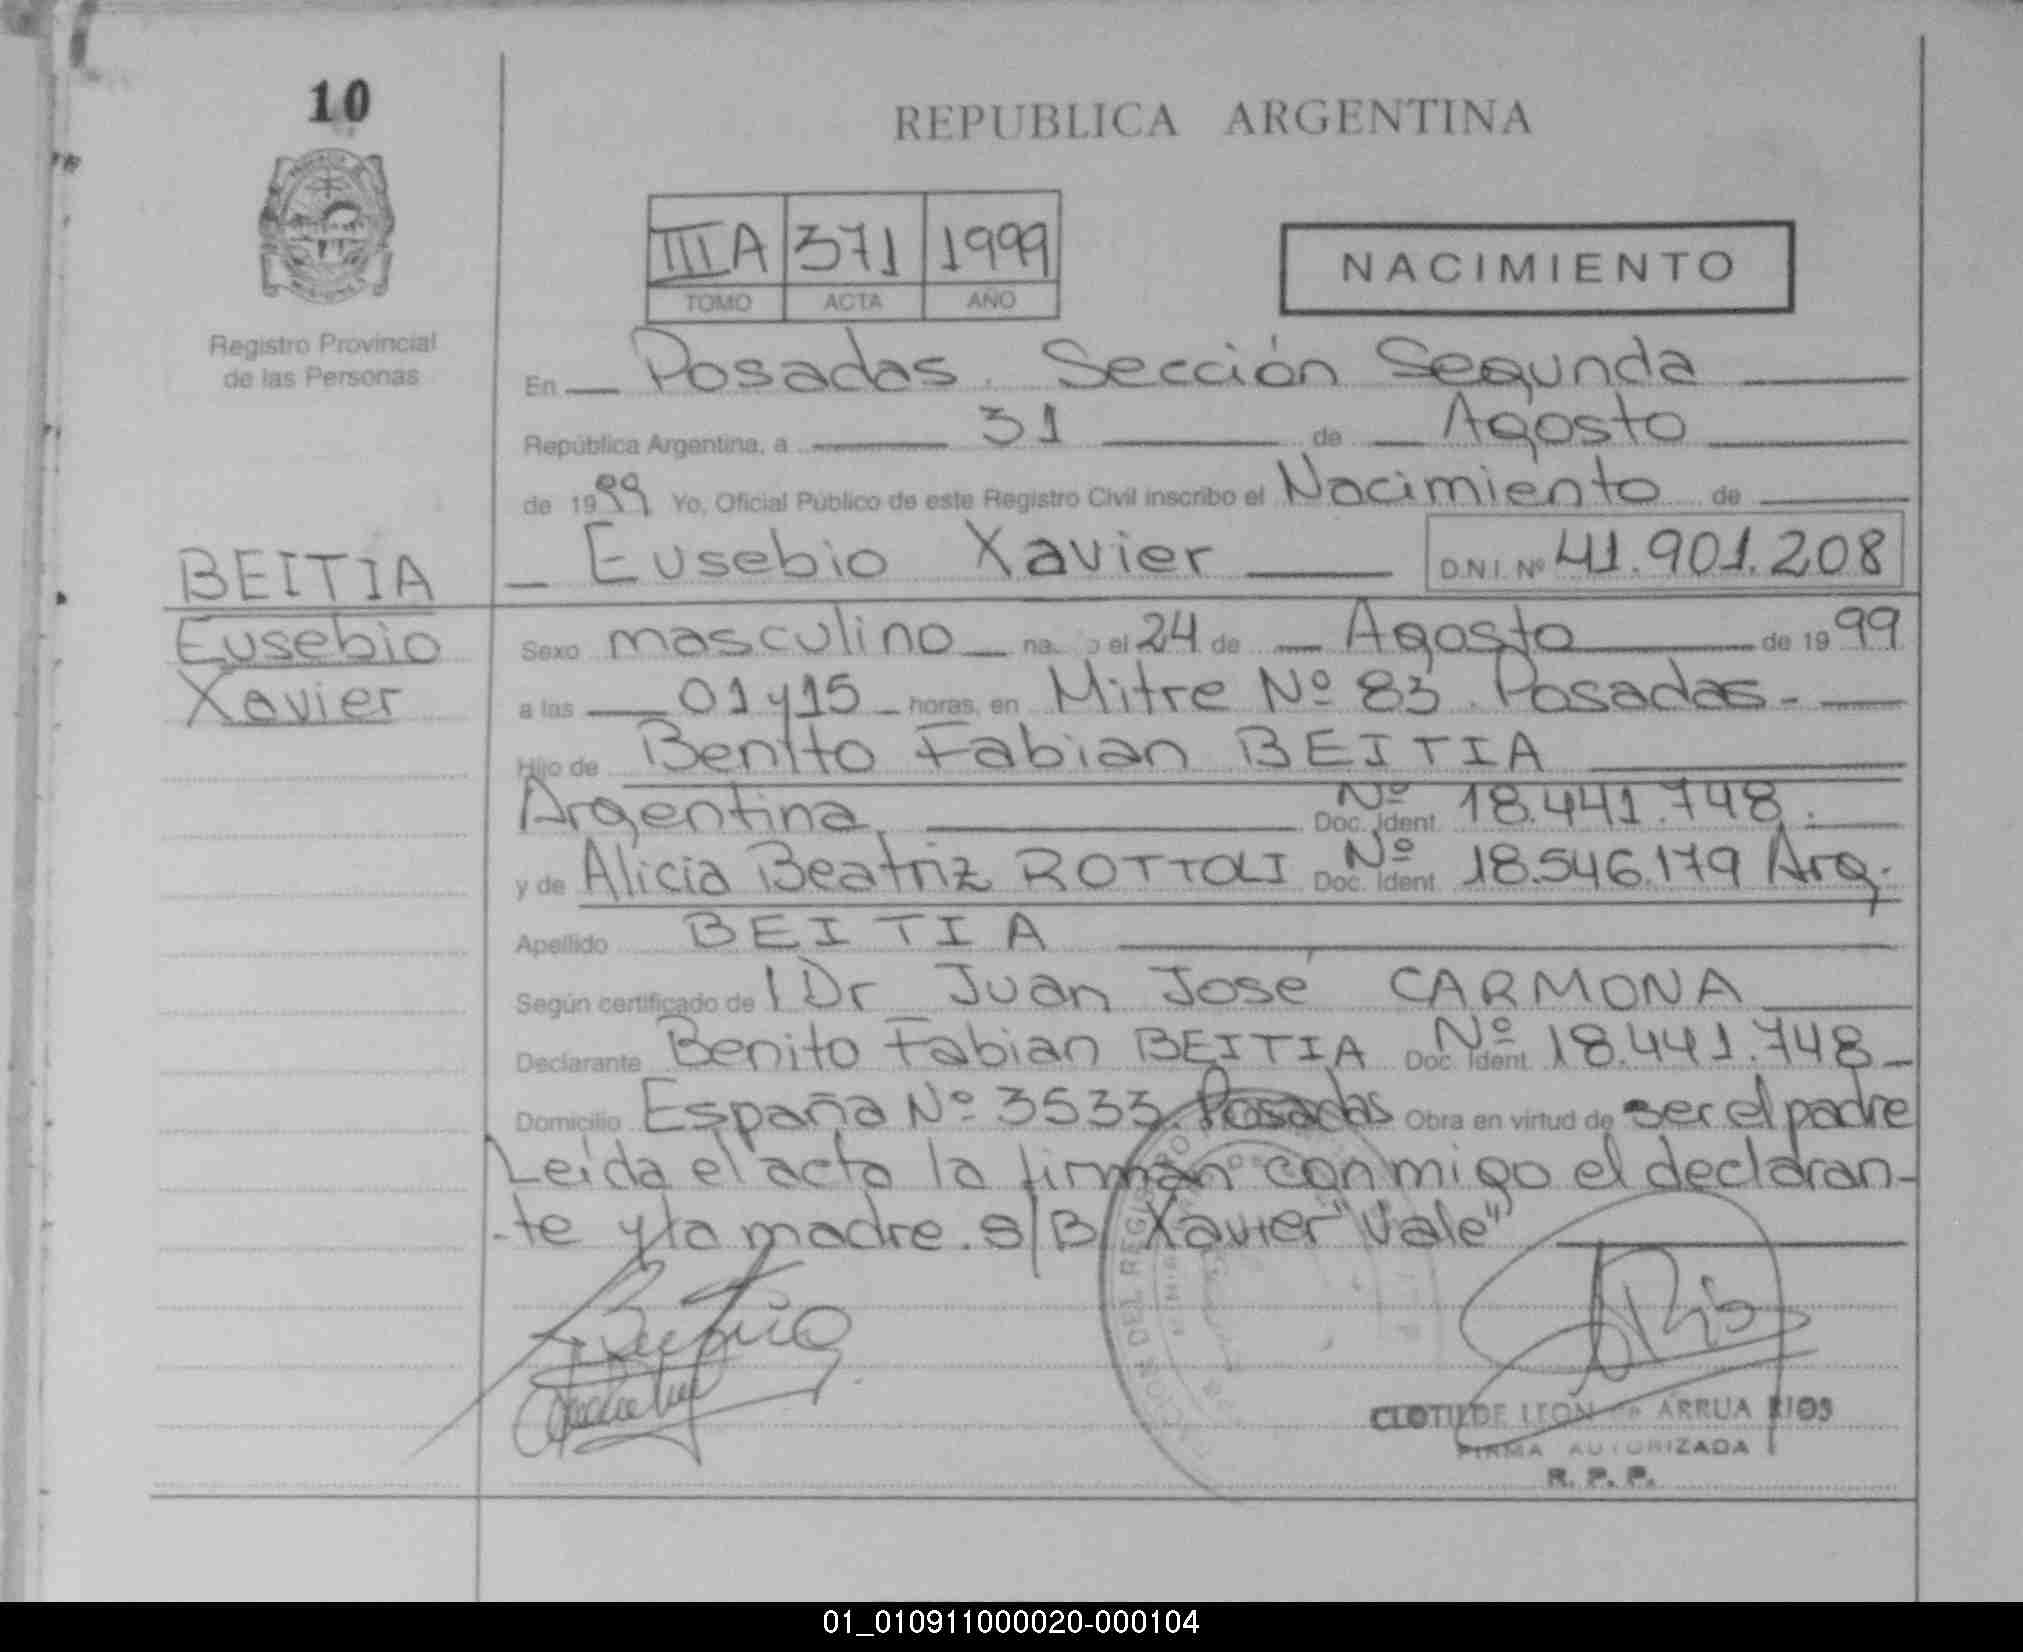 10
REPUBLICA ARGENTINA
IIIA 371 1999
TOMO ACTA AÑO
NACIMIENTO
Registro Provincial
de las Personas
En Posadas. Sección Segunda
República Argentina, a 31 de Agosto
de 1999 Yo, Oficial Público de este Registro Civil inscribo el Nacimiento de
Eusebio Xavier D.N.I. Nº 41.901.208
BEITIA
Eusebio
Xavier
Sexo masculino na o el 24 de Agosto de 1999
a las 01 y 15 horas, en Mitre Nº 83. Posadas.-
Hijo de Benito Fabian BEITIA
Argentina, Doc. Ident. Nº 18.441.748.
y de Alicia Beatriz ROTTOLI Doc. Ident. Nº 18.546.179 Arg.
Apellido BEITIA
Según certificado de l Dr Juan José CARMONA
Declarante Benito Fabian BEITIA Doc. Ident. Nº 18.441.748
Domicilio España Nº 3533. Posadas Obra en virtud de ser el padre
Leída el acta la firman conmigo el declaran-
-te y la madre. S/B/ Xavier "Vale"
CLOTILDE LEON de ARRUA RIOS
FIRMA AUTORIZADA
R. P. P.
01_010911000020-000104